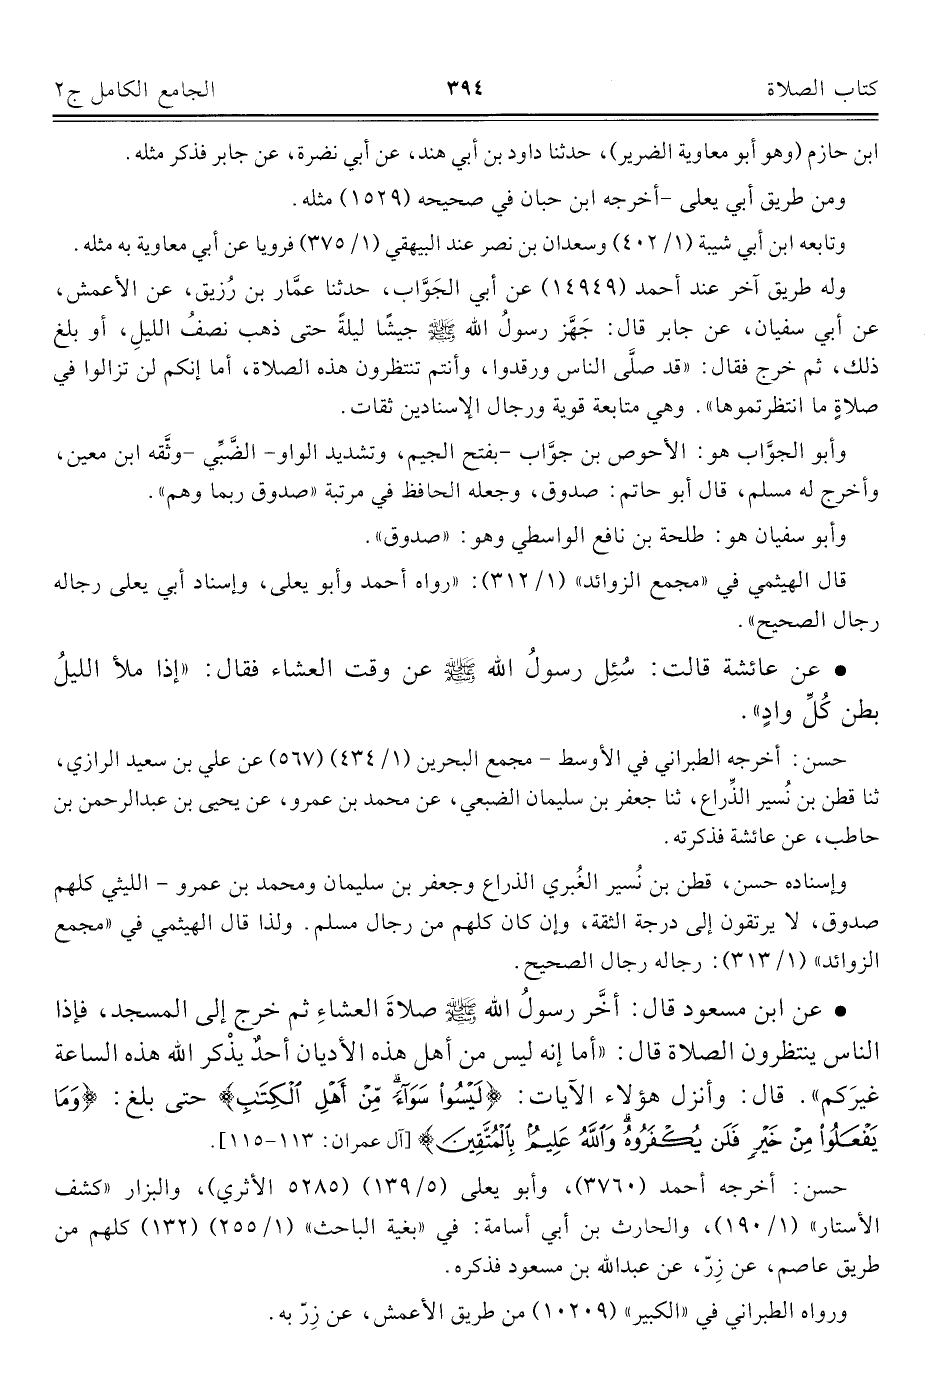 كتاب الصلاة ٣٩٤ الجامع الكامل ج٢
ابن حازم (وهو أبو معاوية الضرير)، حدثنا داود بن أبي هند، عن أبي نضرة، عن جابر فذكر مثله.
ومن طريق أبي يعلى -أخرجه ابن حبان في صحيحه (١٥٢٩) مثله.
وتابعه ابن أبي شيبة (١/ ٤٠٢) وسعدان بن نصر عند البيهقي (١/ ٣٧٥) فرويا عن أبي معاوية به مثله.
وله طريق آخر عند أحمد (١٤٩٤٩) عن أبي الجَوَّاب، حدثنا عمَّار بن رُزيق، عن الأعمش،
عن أبي سفيان، عن جابر قال: جَهَّز رسولُ الله ﷺ جيشًا ليلةً حتى ذهب نصفُ الليلِ، أو بلغ
ذلك، ثم خرج فقال: «قد صلَّى الناس ورقدوا، وأنتم تنتظرون هذه الصلاة، أما إنكم لن تزالوا في
صلاةٍ ما انتظرتموها». وهي متابعة قوية ورجال الإسنادين ثقات.
وأبو الجوَّاب هو: الأحوص بن جوَّاب -بفتح الجيم، وتشديد الواو- الضَّبِّي -وثَّقه ابن معين،
وأخرج له مسلم، قال أبو حاتم: صدوق، وجعله الحافظ في مرتبة «صدوق ربما وهم».
وأبو سفيان هو: طلحة بن نافع الواسطي وهو: «صدوق».
قال الهيثمي في «مجمع الزوائد» (١/ ٣١٢): «رواه أحمد وأبو يعلى، وإسناد أبي يعلى رجاله
رجال الصحيح».
• عن عائشة قالت: سُئِل رسولُ الله ﷺ عن وقت العشاء فقال: «إذا ملأ الليلُ
بطن كُلِّ وادٍ».
حسن: أخرجه الطبراني في الأوسط - مجمع البحرين (١/ ٤٣٤) (٥٦٧) عن علي بن سعيد الرازي،
ثنا قطن بن نُسير الذِّراع، ثنا جعفر بن سليمان الضبعي، عن محمد بن عمرو، عن يحيى بن عبدالرحمن بن
حاطب، عن عائشة فذكرته.
وإسناده حسن، قطن بن نُسير الغُبري الذراع وجعفر بن سليمان ومحمد بن عمرو - الليثي كلهم
صدوق، لا يرتقون إلى درجة الثقة، وإن كان كلهم من رجال مسلم. ولذا قال الهيثمي في «مجمع
الزوائد» (١/ ٣١٣): رجاله رجال الصحيح.
• عن ابن مسعود قال: أخَّر رسولُ الله ﷺ صلاةَ العشاءِ ثم خرج إلى المسجد، فإذا
الناس ينتظرون الصلاة قال: «أما إنه ليس من أهل هذه الأديان أحدٌ يذْكر الله هذه الساعة
غيرَكم». قال: وأنزل هؤلاء الآيات: ﴿لَيْسُوا۟ سَوَآءً ۗ مِّنْ أَهْلِ ٱلْكِتَٰبِ﴾ حتى بلغ: ﴿وَمَا
يَفْعَلُوا۟ مِنْ خَيْرٍ فَلَن يُكْفَرُوهُ ۗ وَٱللَّهُ عَلِيمٌۢ بِٱلْمُتَّقِينَ﴾ [آل عمران: ١١٣-١١٥].
حسن: أخرجه أحمد (٣٧٦٠)، وأبو يعلى (٥/ ١٣٩) (٥٢٨٥ الأثري)، والبزار «كشف
الأستار» (١/ ١٩٠)، والحارث بن أبي أسامة: في «بغية الباحث» (١/ ٢٥٥) (١٣٢) كلهم من
طريق عاصم، عن زِرّ، عن عبدالله بن مسعود فذكره.
ورواه الطبراني في «الكبير» (١٠٢٠٩) من طريق الأعمش، عن زِرّ به.